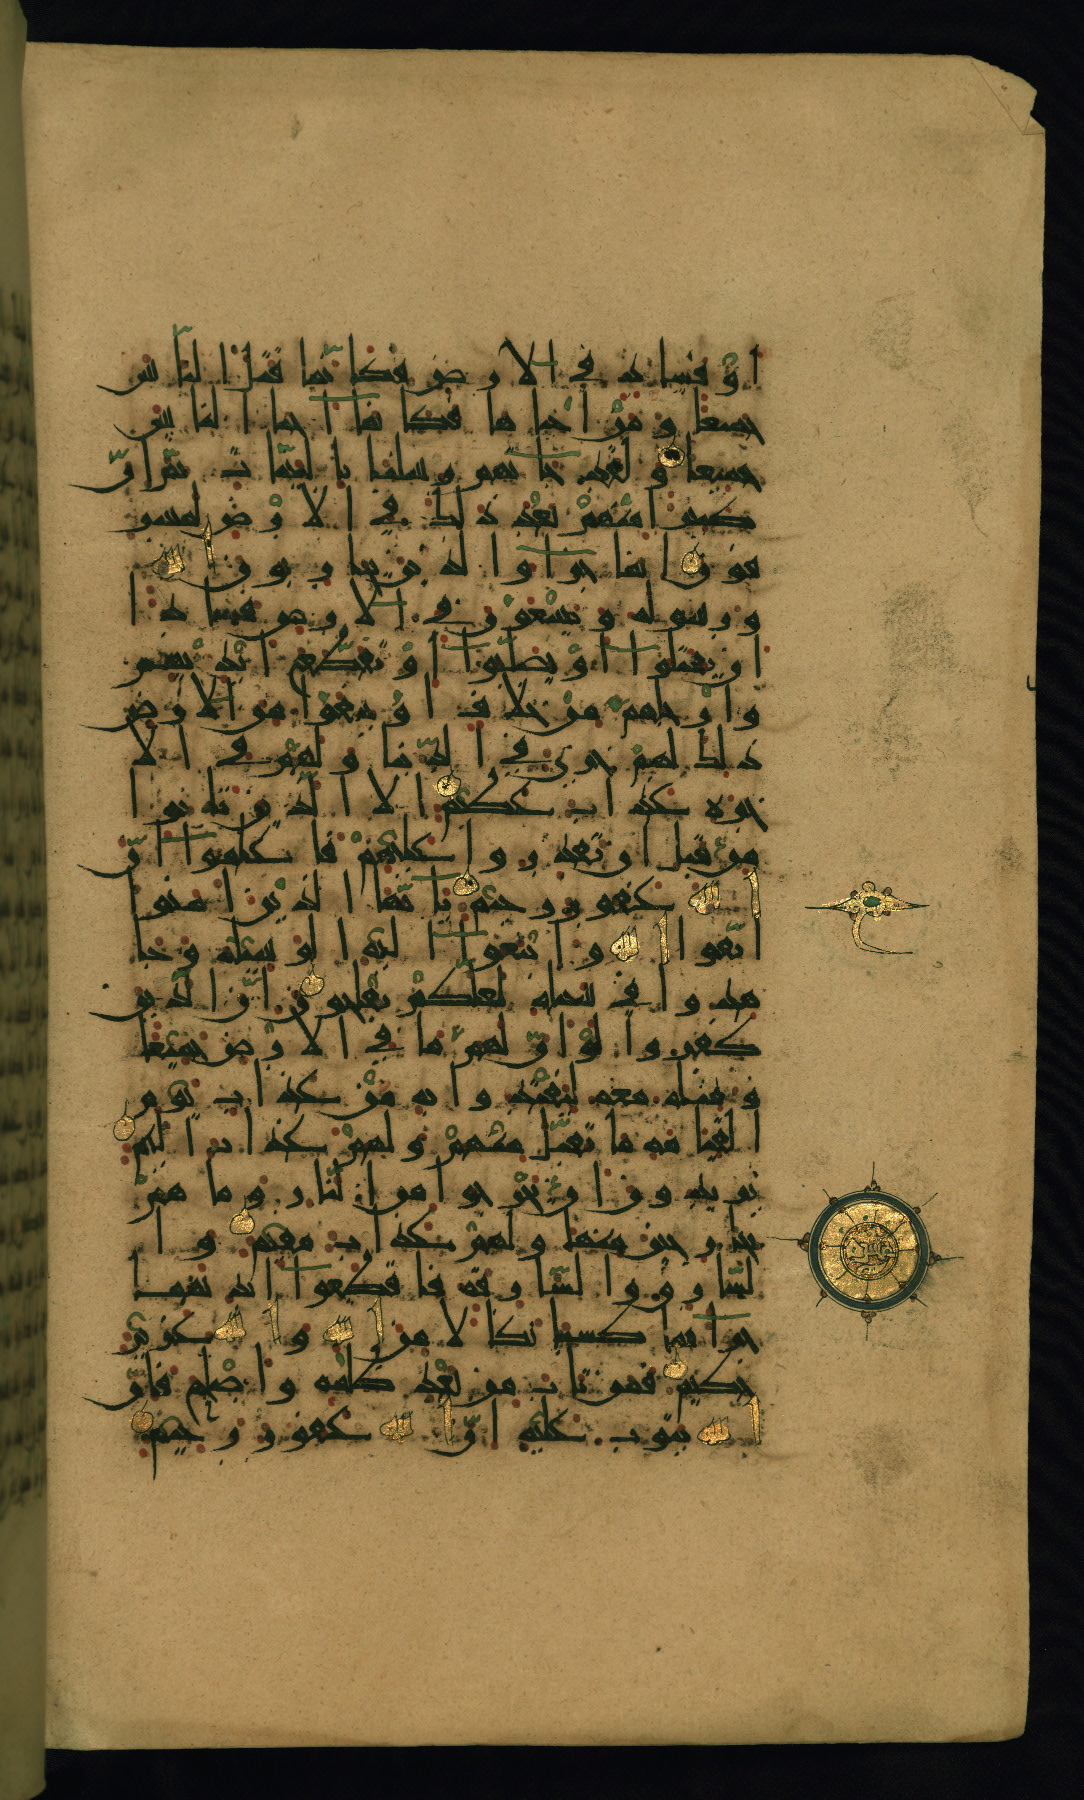 او فساد في الارض فكانما قتل الناس
جميعا و من احيا ها فكا نما ا حيا ا لنا س
جميعا و لقد جا تهم ر سلنا با لبينا ت ثم ا ن
كثير ا منهم بعد ذ لك في ا لا ر ض لمسر
فو ن ا نما جز ا وا ا لذ ين يحا ر بو ن الله
و ر سو له و يسعو ن في ا لا ر ض فسا د ا
ا ن يقتلو ا ا و يصلبو ا ا و تقطع ا يد يهم
و ا ر جلهم من خلا ف ا و ينفو ا من ا لا ر ض
ذ لك لهم خز ي في ا لد نيا و لهم في ا لا
خر ة عذ ا ب عظيم ا لا ا لذ ين تا بو ا
من قبل ا ن تقد ر و ا عليهم فا علمو ا ا ن
ا لله غفو ر ر حيم يا يها ا لذ ين ا منو ا
ا تقو ا ا لله و ا بتغو ا ا ليه ا لو سيلة و جا
هد و ا في سبيله لعلكم تفلحو ن ا ن ا لذ ين
كفر و ا لو ا ن لهم ما في ا لا ر ض جميعا
و مثله معه ليفتد و ا به من عذ ا ب يو م
ا لقيا مة ما تقبل منهم و لهم عذ ا ب ا ليم
ير يد و ن ا ن يخر جو ا من ا لنا ر و ما هم
بخا ر جين منها و لهم عذ ا ب مقيم و ا
لسا ر ق و ا لسا ر قة فا قطعو ا ا يد يهما
جز ا بما كسبا نكا لا من ا لله و ا لله عز يز
حكيم فمن تا ب من بعد ظلمه و ا صلح فا ن
ا لله يتو ب عليه ا ن ا لله غفو ر ر حيم